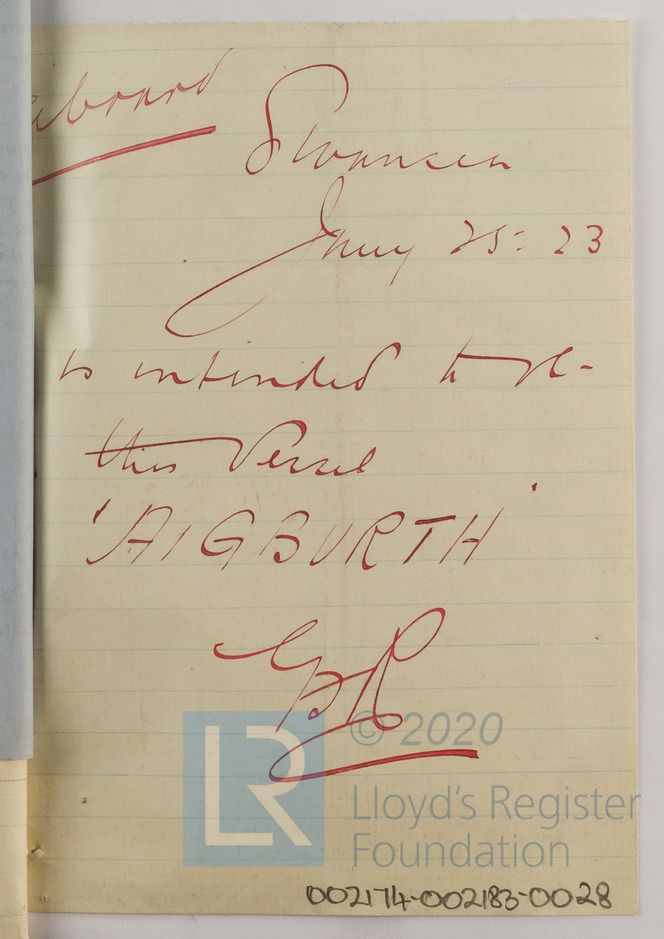 Swansea
Jany 25: 23
is intended to re-
this Vessel
'AIGBURTH'
GBR
© 2020
LR
Lloyd's Register
Foundation
002174-002183-0028